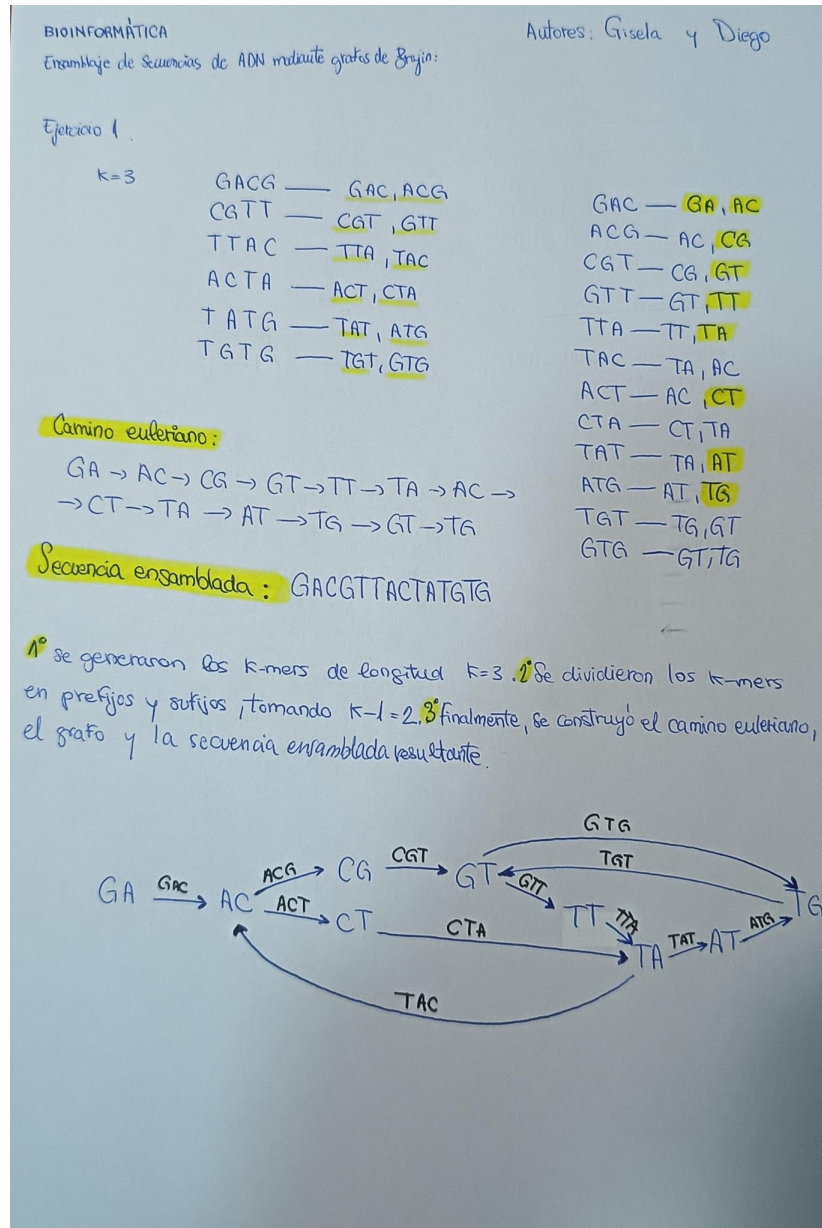 BIOINFORMÁTICA
Autores: Gisela y Diego
Ensamblaje de Secuencias de ADN mediante grafos de Brujin:
Ejercicio 1.
K=3
GACG — GAC, ACG
CGTT — CGT, GTT
TTAC — TTA, TAC
ACTA — ACT, CTA
TATG — TAT, ATG
TGTG — TGT, GTG
GAC — GA, AC
ACG — AC, CG
CGT — CG, GT
GTT — GT, TT
TTA — TT, TA
TAC — TA, AC
ACT — AC, CT
CTA — CT, TA
TAT — TA, AT
ATG — AT, TG
TGT — TG, GT
GTG — GT, TG
Camino euleriano:
GA → AC → CG → GT → TT → TA → AC →
→ CT → TA → AT → TG → GT → TG
Secuencia ensamblada: GACGTTACTATGTG
1º se generaron los k-mers de longitud k=3. 2º Se dividieron los k-mers
en prefijos y sufijos, tomando k-1=2. 3º finalmente, se construyó el camino euleriano,
el grafo y la secuencia ensamblada resultante.
GTG
TGT
GA GAC AC ACG CG CGT GT GTT TT TTA TA TAT AT ATG TG
ACT CT CTA
TAC